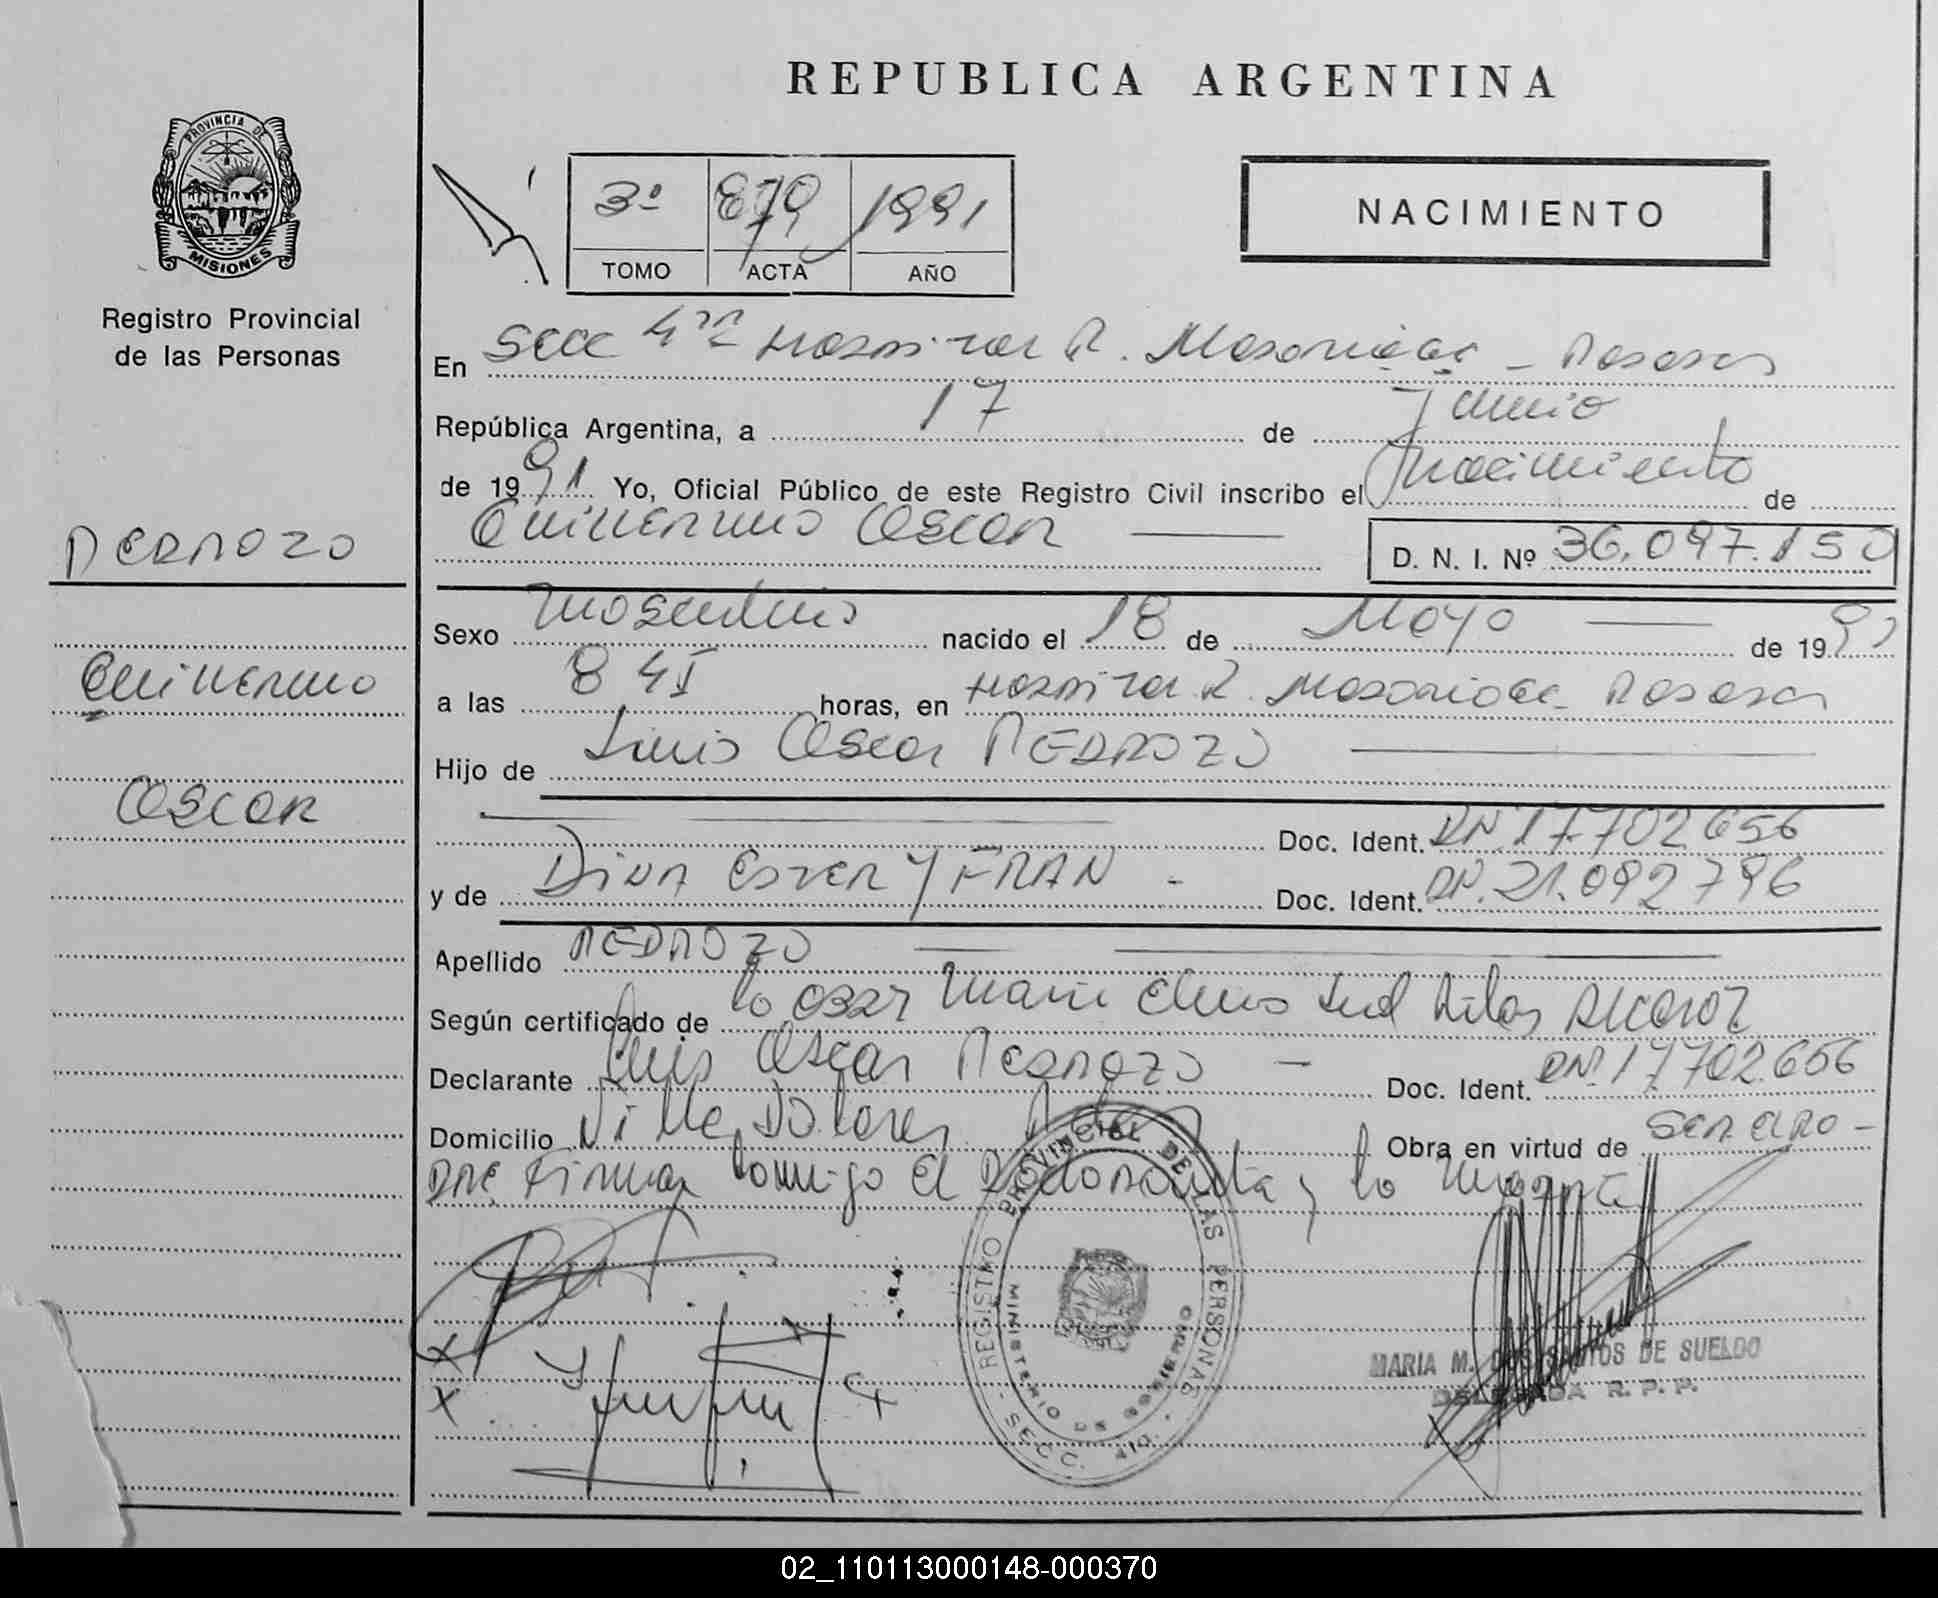 REPUBLICA ARGENTINA
PROVINCIA DE
MISIONES
Registro Provincial
de las Personas
3º 879 1991
TOMO ACTA AÑO
NACIMIENTO
En Secc 4ta Hospital R. Madariaga - Posadas
República Argentina, a 17 de Junio
de 1991 Yo, Oficial Público de este Registro Civil inscribo el nacimiento de
Guillermo Oscar D. N. I. Nº 36.097.150
PEDROZO
Guillermo
Oscar
Sexo Masculino nacido el 18 de Mayo de 1991
a las 8 45 horas, en Hospital R. Madariaga - Posadas
Hijo de Luis Oscar PEDROZO
Doc. Ident. DNI 17.702656
y de Dina Ester YFRAN - Doc. Ident. DNI. 21.092796
Apellido PEDROZO
Según certificado de la Obst Maria
Declarante Luis Oscar Pedrozo - Doc. Ident. DNI. 17702.656
Domicilio Villa Dolores Obra en virtud de ser claro -
Firman conmigo el Declarante y la
REGISTRO PROVINCIAL DE LAS PERSONAS
MINISTERIO DE GOBIERNO
SECC. 4TA.
MARIA M. DOS SANTOS DE SUELDO
DELEGADA R. P. P.
02_110113000148-000370